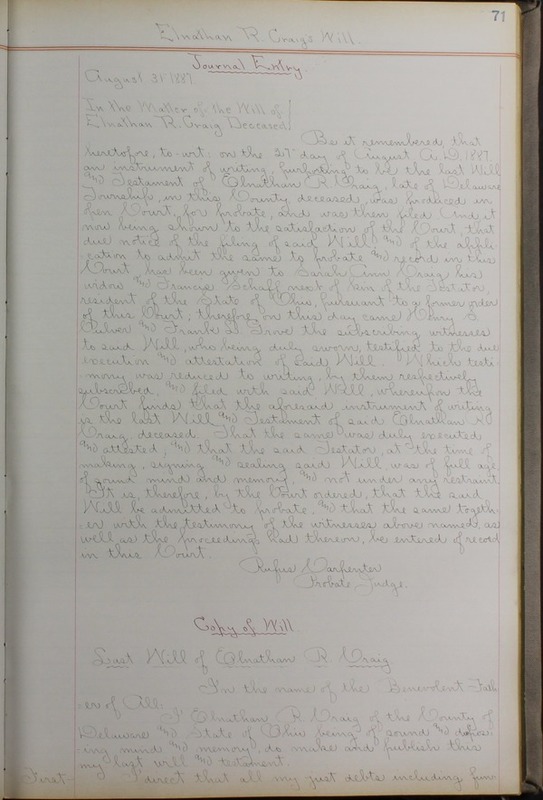 71
Elnathan R. Craig's Will.
Journal Entry.
August 31 1887
In the Matter of the Will of
Elnathan R. Craig Deceased
Be it remembered, that
heretofore, to-wit: on the 27" day of August A.D. 1887.
an instrument of writing, purporting to be the last Will
and Testament of Elnathan R. Craig, late of Delaware
Township, in this County, deceased, was produced in
open Court, for probate, and was then filed. And it
now being shown to the satisfaction of the Court, that
due notice of the filing of said Will, and of the appli-
cation to admit the same to probate and record in this
Court, has been given to Sarah Ann Craig his
widow and Francis Schaff next of kin of the Testator,
resident of the State of Ohio, pursuant to a former order
of this Court; therefore, on this day came Henry S.
Culver and Frank S. Grove the subscribing witnesses
to said Will, who being duly sworn, testified to the due
execution and attestation of said Will. Which testi-
mony was reduced to writing by them respectively
subscribed, and filed with said Will, whereupon the
Court finds that the aforesaid instrument of writing
is the last Will and Testament of said Elnathan R.
Craig, deceased. That the same was duly executed
and attested, and that the said Testator, at the time of
making, signing and sealing said Will was of full age,
of sound mind and memory, and not under any restraint.
It is, therefore, by the Court ordered, that the said
Will be admitted to probate. and that the same togeth-
er with the testimony of the witnesses above named, as
well as the proceedings had thereon, be entered of record
in this Court.
Rufus Carpenter
Probate Judge.
Copy of Will.
Last Will of Elnathan R. Craig
In the name of the Benevolent Fath-
er of All:
I Elnathan R. Craig of the County of
Delaware and State of Ohio being of sound and dispos-
ing mind and memory, do make and publish this
my last will and testament.
First I direct that all my just debts including fun-